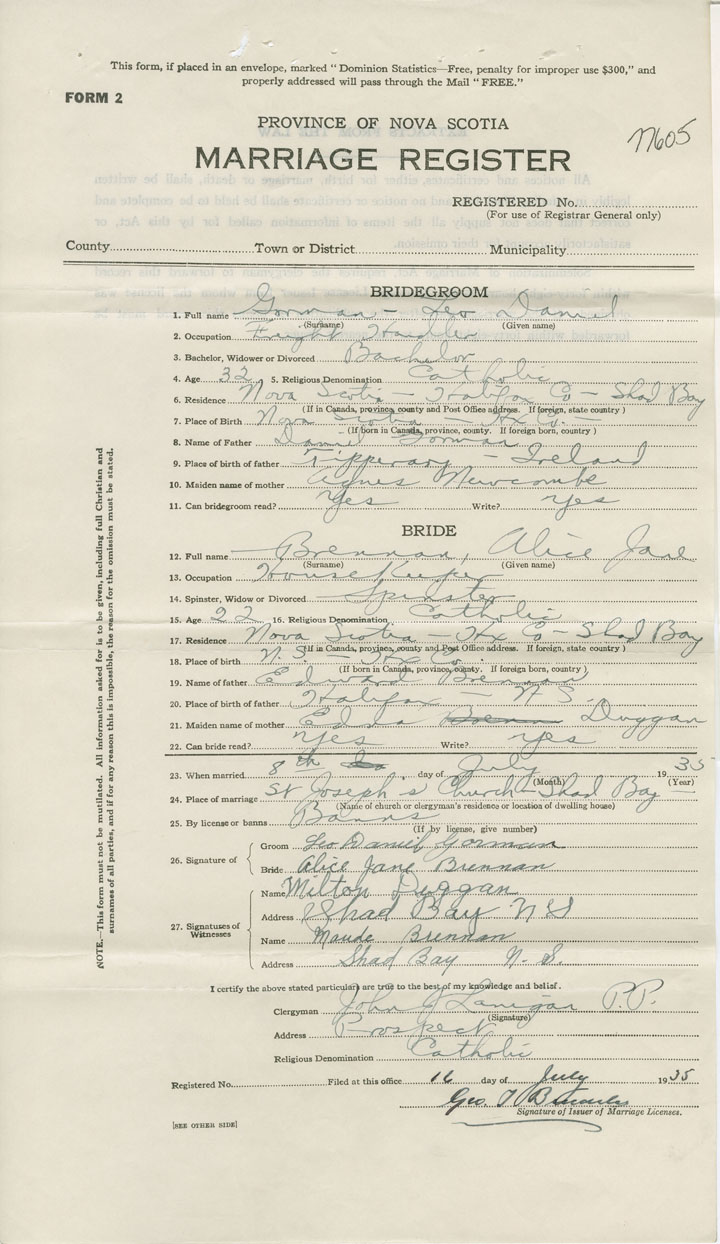 This form, if placed in an envelope, marked "Dominion Statistics—Free, penalty for improper use $300," and
properly addressed will pass through the Mail "FREE."
FORM 2
PROVINCE OF NOVA SCOTIA
MARRIAGE REGISTER
REGISTERED No.
(For use of Registrar General only)
County Town or District Municipality
BRIDEGROOM
1. Full name Gorman - Leo Daniel
(Surname) (Given name)
2. Occupation Freight Handler
3. Bachelor, Widower or Divorced Bachelor
4. Age 32 5. Religious Denomination Catholic
6. Residence Nova Scotia - Halifax Co - Shad Bay
(If in Canada, province, county and Post Office address. If foreign, state country)
7. Place of Birth Nova Scotia - Hx Co.
(If born in Canada, province, county. If foreign born, country)
8. Name of Father Daniel Gorman
9. Place of birth of father Tipperary - Ireland
10. Maiden name of mother Agnes Newcombe
11. Can bridegroom read? Yes Write? Yes
BRIDE
12. Full name Brennan, Alice Jane
(Surname) (Given name)
13. Occupation House Keeper
14. Spinster, Widow or Divorced Spinster
15. Age 22 16. Religious Denomination Catholic
17. Residence Nova Scotia - Hx Co - Shad Bay
(If in Canada, province, county and Post Office address. If foreign, state country)
18. Place of birth N.S. - Hx Co.
(If born in Canada, province, county. If foreign born, country)
19. Name of father Edward Brennan
20. Place of birth of father Halifax - N.S.
21. Maiden name of mother Edna Duggan
22. Can bride read? Yes Write? Yes
23. When married 8th day of July 1935
(Month) (Year)
24. Place of marriage St Joseph's Church - Shad Bay -
(Name of church or clergyman's residence or location of dwelling house)
25. By license or banns Banns
(If by license, give number)
26. Signature of Groom Leo Daniel Gorman
Bride Alice Jane Brennan
27. Signatures of Witnesses Name Milton Duggan
Address Shad Bay N S
Name Maude Brennan
Address Shad Bay N. S.
I certify the above stated particulars are true to the best of my knowledge and belief.
Clergyman John J Lanigan P.P.
(Signature)
Address Prospect
Religious Denomination Catholic
Registered No. Filed at this office 16 day of July 1935
Geo. T
Signature of Issuer of Marriage Licenses.
[SEE OTHER SIDE]
NOTE.—This form must not be mutilated. All information asked for is to be given, including full Christian and
surnames of all parties, and if for any reason this is impossible, the reason for the omission must be stated.